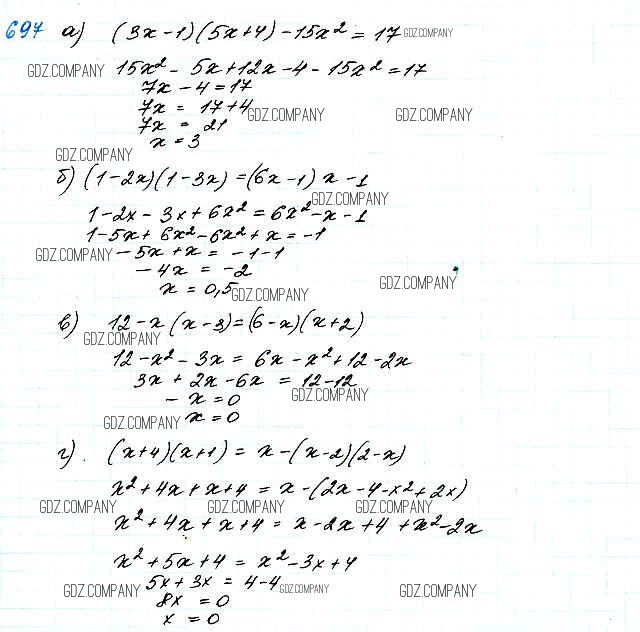 697 а) (3x-1)(5x+4)-15x²=17 GDZ.COMPANY
GDZ.COMPANY 15x²-5x+12x-4-15x²=17
7x-4=17
7x = 17+4
GDZ.COMPANY GDZ.COMPANY
7x = 21
x=3
GDZ.COMPANY
б) (1-2x)(1-3x)=(6x-1)x-1
GDZ.COMPANY
1-2x-3x+6x²=6x²-x-1
1-5x+6x²-6x²+x=-1
GDZ.COMPANY -5x+x= -1-1
-4x = -2
GDZ.COMPANY
x = 0,5 GDZ.COMPANY
в) 12-x(x-3)=(6-x)(x+2)
GDZ.COMPANY
12-x²-3x = 6x-x²+12-2x
3x+2x-6x = 12-12
GDZ.COMPANY
-x=0
GDZ.COMPANY x=0
г). (x+4)(x+1) = x-(x-2)(2-x)
x²+4x+x+4 = x-(2x-4-x²+2x)
GDZ.COMPANY GDZ.COMPANY GDZ.COMPANY
x²+4x+x+4 = x-2x+4+x²-2x
x²+5x+4 = x²-3x+4
5x+3x = 4-4
GDZ.COMPANY GDZ.COMPANY GDZ.COMPANY
8x = 0
x = 0